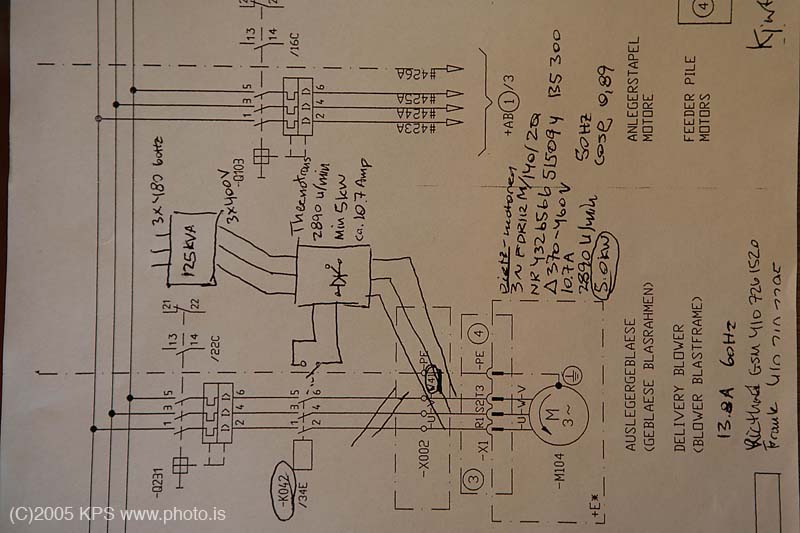 13
14
/16C
5
3
1
6
4
2
-Q103
#426A
#425A
#424A
#423A
+AB 1/3
ANLEGERSTAPEL
MOTORE
FEEDER PILE
MOTORS
4
3x480 60Hz
125KVA
3x400V
2890 u/min
Min 5kW
ca. 10.7 Amp
3~ FDR112M/140/2Q
Δ 370-460V
10.7A
2890 U/min
5.0kW
B5 300
50Hz
cosφ 0,89
21
22
13
14
/22C
5
3
1
6
4
2
-Q231
5
3
1
6
4
2
-K042
/34E
-X002
PE
3
-X1
4
-PE
R1
S2
T3
U
V
V
M
3~
-M104
+E*
AUSLEGERGEBLAESE
(GEBLAESE BLASRAHMEN)
DELIVERY BLOWER
(BLOWER BLASTFRAME)
13.8A 60Hz
GSM 410 726 1520
Frank
(C)2005 KPS www.photo.is